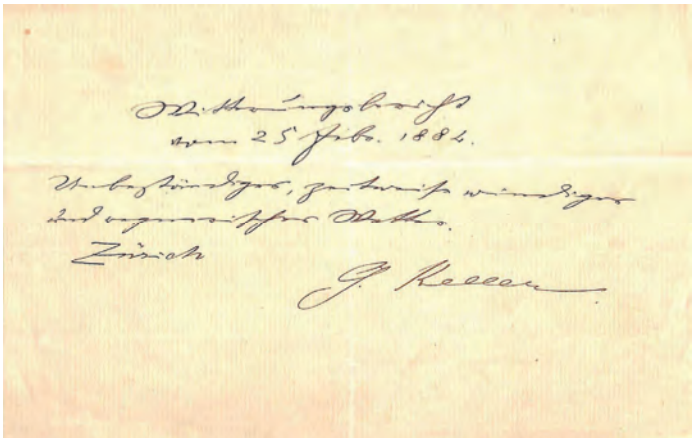 Witterungsbericht
vom 25 Febr. 1884.
Unbeständiges, zeitweise windiges
und regnerisches Wetter.
Zürich
G. Keller